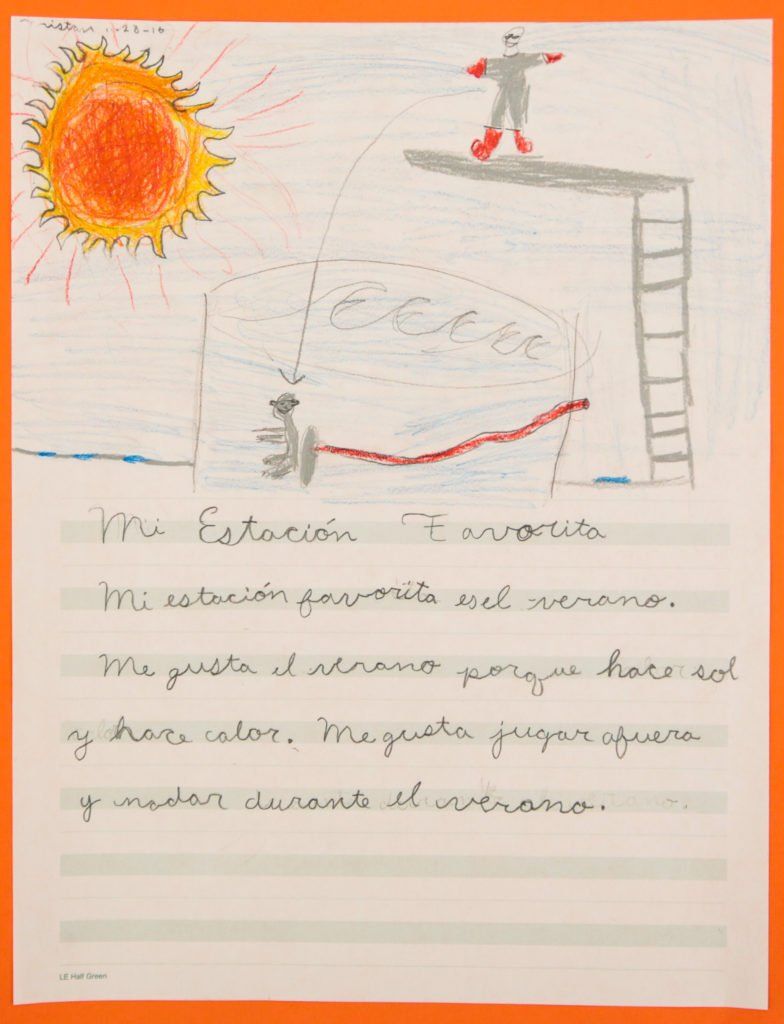 28-16
Mi Estación Favorita
Mi estación favorita es el verano.
Me gusta el verano porque hace sol
y hace calor. Me gusta jugar afuera
y nadar durante el verano.
LE Half Green